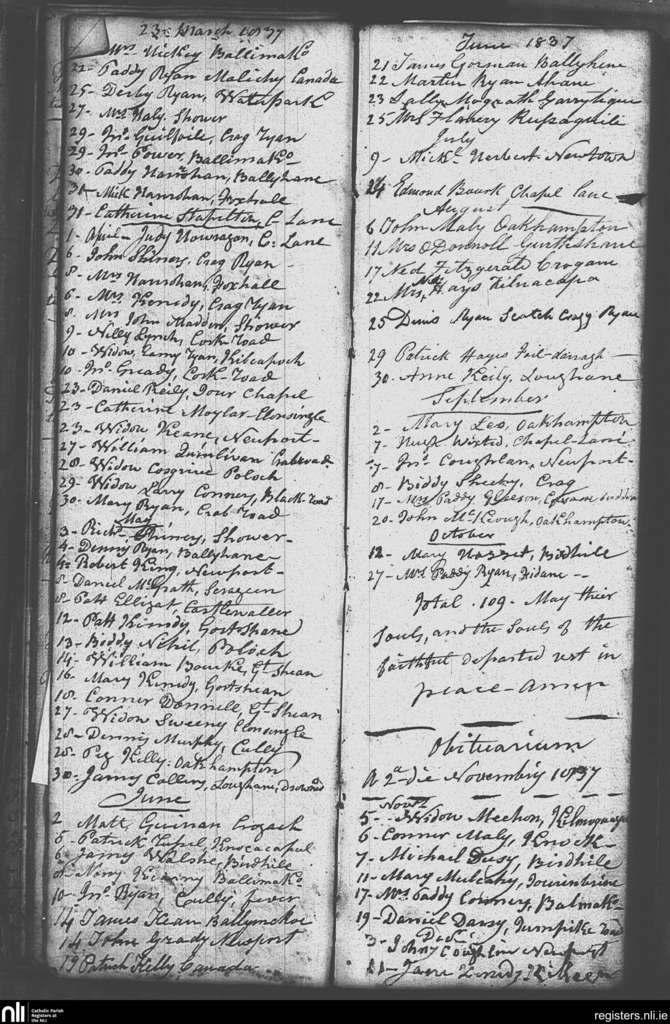 23- March 1837
Mrs Hickey Ballimako
22- Paddy Ryan Malichy Canada
25- Derby Ryan, Waterpark
27- Mrs Haly, Shower
29- Jno. Guilfoile, Crag Ryan
29- Jno. Power, Ballimako
30- Paddy Hanrahan, Ballyhane
31- Mick Hanrahan, Foxhall
31- Catherine Stapelton, C- Lane
1- April- Judy Nowragan, C: Lane
6- John Skinny, Crag Ryan -
8- Mrs Hanrahan, Foxhall
6- Mrs Kenedy, Crag Ryan
8- Mrs John Madden, Shower
9- Nelly Lynch, Cork Road
10- Widow, Ryan, Kilcapoch
10- Jno. Gready, Cork Road
23- Daniel Reily, Chapel
23- Catherine Moylar- Clonsingle
23- Widow Keane, Newport-
27- William Quinlivan Crabroad
28- Widow Cosgrive Poloch
29- Widow Lary Conners, Black-road
30- Mary Ryan, Crab Road
May
3- Richd. Shower-
4- Denny Ryan, Ballyhane
4- Robert King, Newport-
8- Daniel McGrath,
8- Patt Castlewaller
12- Patt Kinidy, GortShane
13- Biddy Nihil, Poloch
14- William Bourke, Gt Shean
16- Mary Kenedy, Gortshean
18- Conner Donnill, Gt Shean
27- Widow Sweeny Clonsingle
28- Dennis Murphy, Cully
28- Peg Kelly- Oakhampton
30- Jamy Collins, Loughane, drownd
June
2 Matt, Guinan Crogach
5- Patrick Knocacapul
6 Jamy Walshe, Birdhile
8- Nany Ballimako
10- Jno. Ryan, Cully, fever
14 James Kean Ballymakoe
14 John Grady Newport
19 Patrick Kelly Canada
June 1837
21 James Gorman Ballyhene
22 Martin Ryan Ahane
23 Sally Magrath Garrytigue
25 Mrs Flahery
July
9- Mickl. Herbert- Newtown
14 Edmond Bourk Chapel Lane
August
6 John Maly Oakhampton
11 Mrs ODonnoll Gurtheshane
17 Ned Fitzgerald Crogane
22 Mrs Hays Kilnacapa
25 Denis Ryan Scotch Cragg Ryan
29 Patrick Hayes Foil-darragh-
30- Anne Keily, Loughane
September
2- Mary Leo, Oakhampton
7- Chapel-Lane
7- Jno. Coughlan, Newport-
8- Biddy Sheehy, Crag
17- Mrs Paddy Gleeson,
20- John McKeough, Oakhampton.
October
12- Mary Birdhile
27- Mrs Paddy Ryan, --
Total . 109 - May their
Souls, and the Souls of the
faithful departed rest in
peace- Amen
Obituarium
A 2a die Novembris 1837
Novr.
5- Widow Meehon,
6- Conner Maly, Knock-
7- Michael Birdhile
11- Mary Mulcahy,
17- Mrs Paddy Balmako
19- Daniel Darsy, Turnpike Road
Decr.
3- John Coughlin Newport
11- Jane
nli
Catholic Parish
Registers at
the NLI
registers.nli.ie